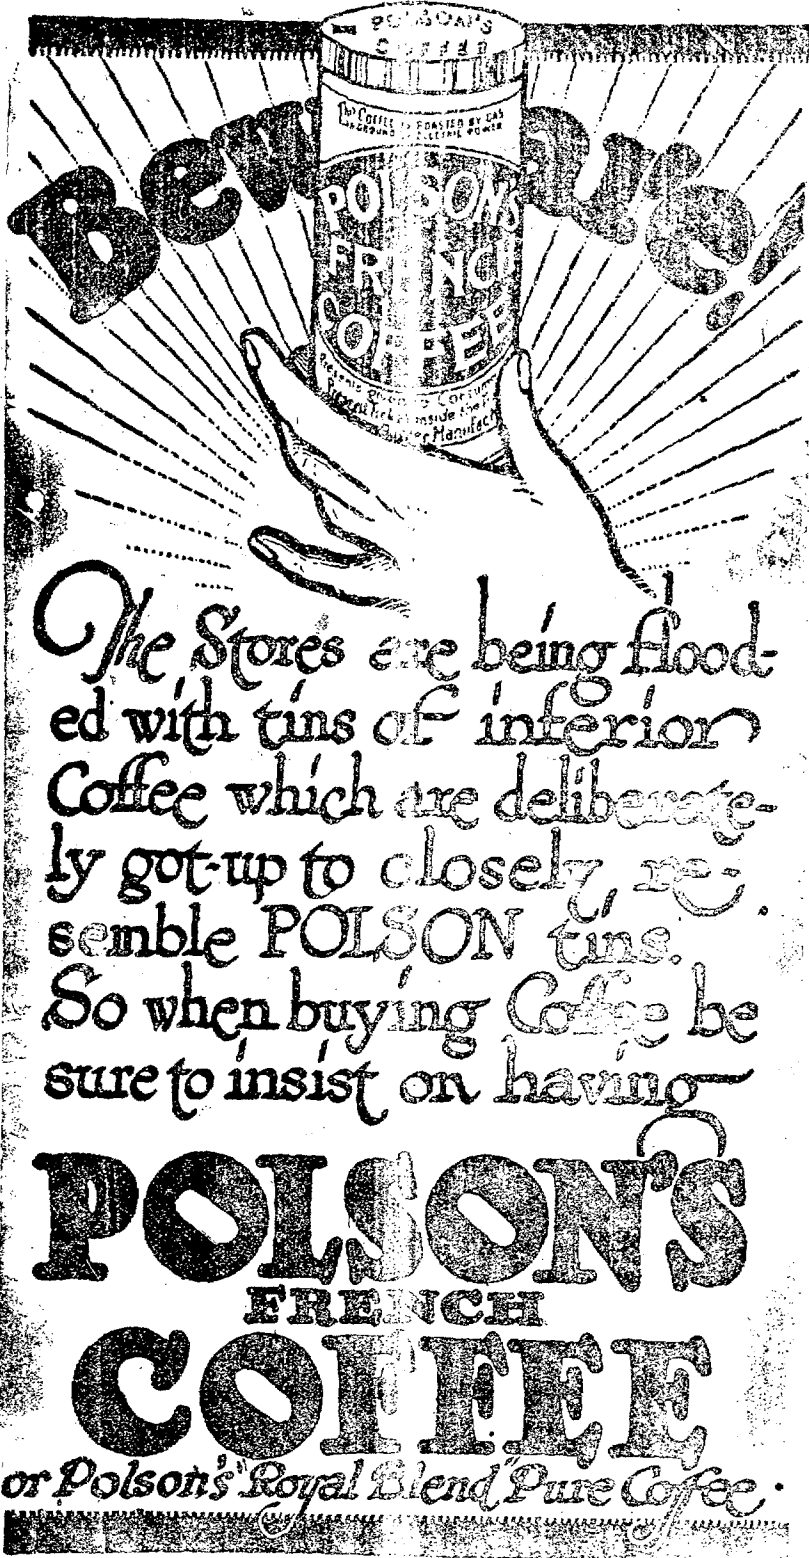 POLSON'S
COFFEE
This COFFEE is ROASTED BY GAS
& GROUND BY ELECTRIC POWER
Beware!
POLSON'S
FRENCH
COFFEE
Presents given to Consumers
Present Ticket inside the
Manufact
The Stores are being flood-
ed with tins of inferior
Coffee which are deliberate-
ly got-up to closely re-
semble POLSON tins.
So when buying Coffee be
sure to insist on having
POLSON'S
FRENCH
COFFEE
or Polson's "Royal Blend" Pure Coffee.